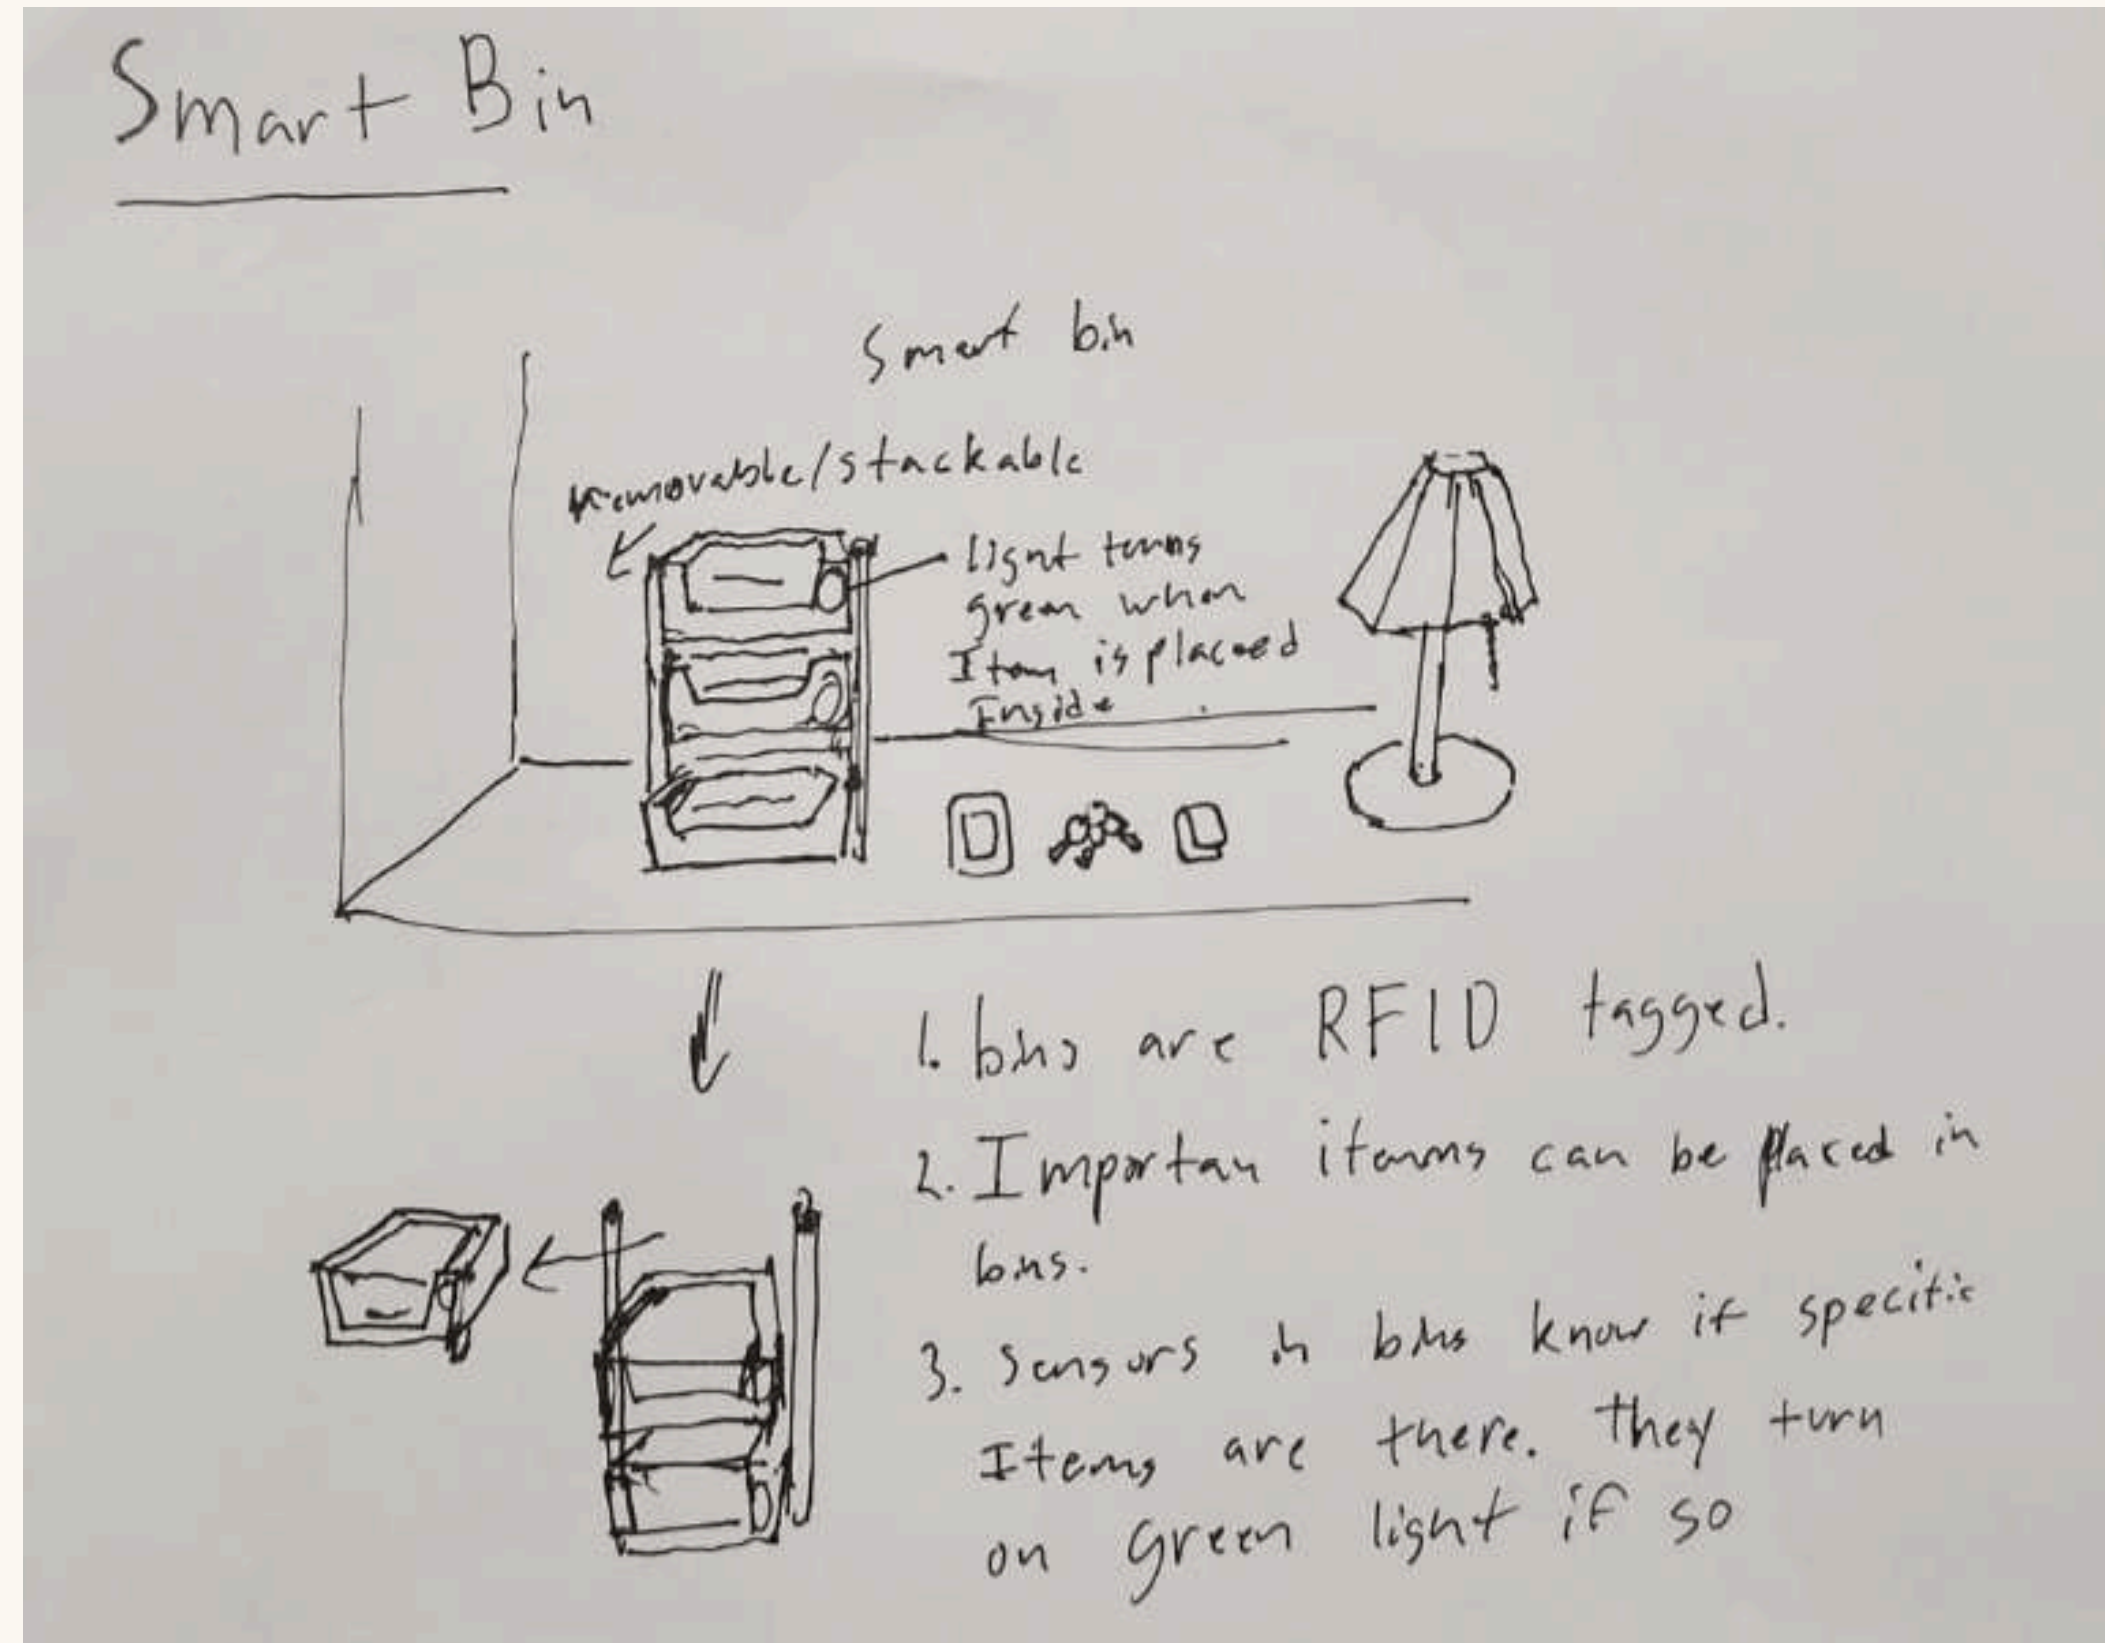 Smart Bin
Smart bin
removable/stackable
light turns
green when
Item is placed
Inside
1. bins are RFID tagged.
2. Importan items can be placed in
bins.
3. Sensors in bins know if specific
Items are there. They turn
on green light if so